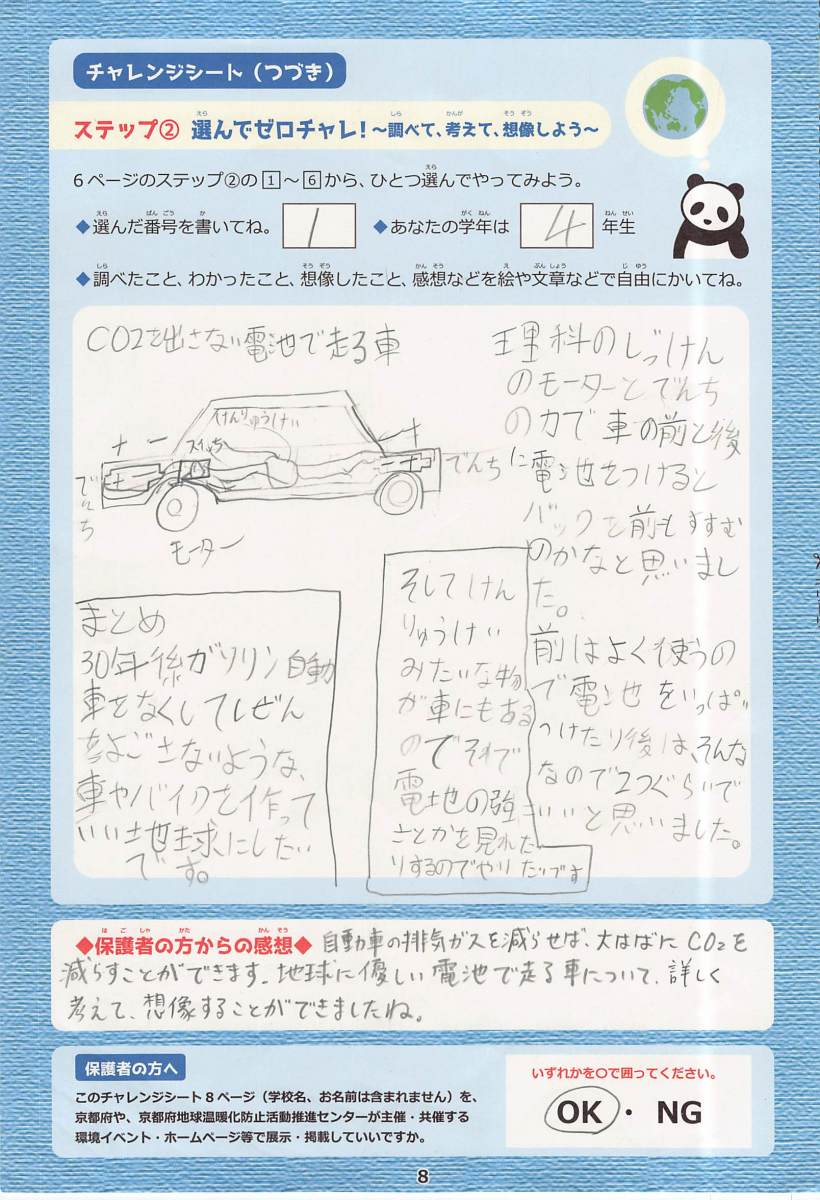 チャレンジシート（つづき）
ステップ② 選んでゼロチャレ！～調べて、考えて、想像しよう～
6ページのステップ②の1～6から、ひとつ選んでやってみよう。
◆選んだ番号を書いてね。 1 ◆あなたの学年は 4 年生
◆調べたこと、わかったこと、想像したこと、感想などを絵や文章などで自由にかいてね。
CO2を出さない電池で走る車
けんりゅうけい
スイッチ
+ -
- +
でんち
でんち
モーター
理科のじっけん
のモーターとでんち
の力で車の前と後
に電池をつけると
バックを前もすすむ
のかなと思いまし
た。
前はよく使うの
で電池をいっぱい
つけたり後は、そんな
なので2つぐらいで
いいと思いました。
そしてけん
りゅうけい
みたいな物
が車にもある
のでそれで
電地の強
さとかを見れた
りするのでやりたいです
まとめ
30年後ガソリン自動
車をなくしてしぜん
をよごさないような、
車やバイクを作って
いい地球にしたい
です。
◆保護者の方からの感想◆ 自動車の排気ガスを減らせば、大はばにCO2を
減らすことができます。地球に優しい電池で走る車について、詳しく
考えて、想像することができましたね。
保護者の方へ
このチャレンジシート8ページ（学校名、お名前は含まれません）を、
京都府や、京都府地球温暖化防止活動推進センターが主催・共催する
環境イベント・ホームページ等で展示・掲載していいですか。
いずれかを○で囲ってください。
OK・NG
8